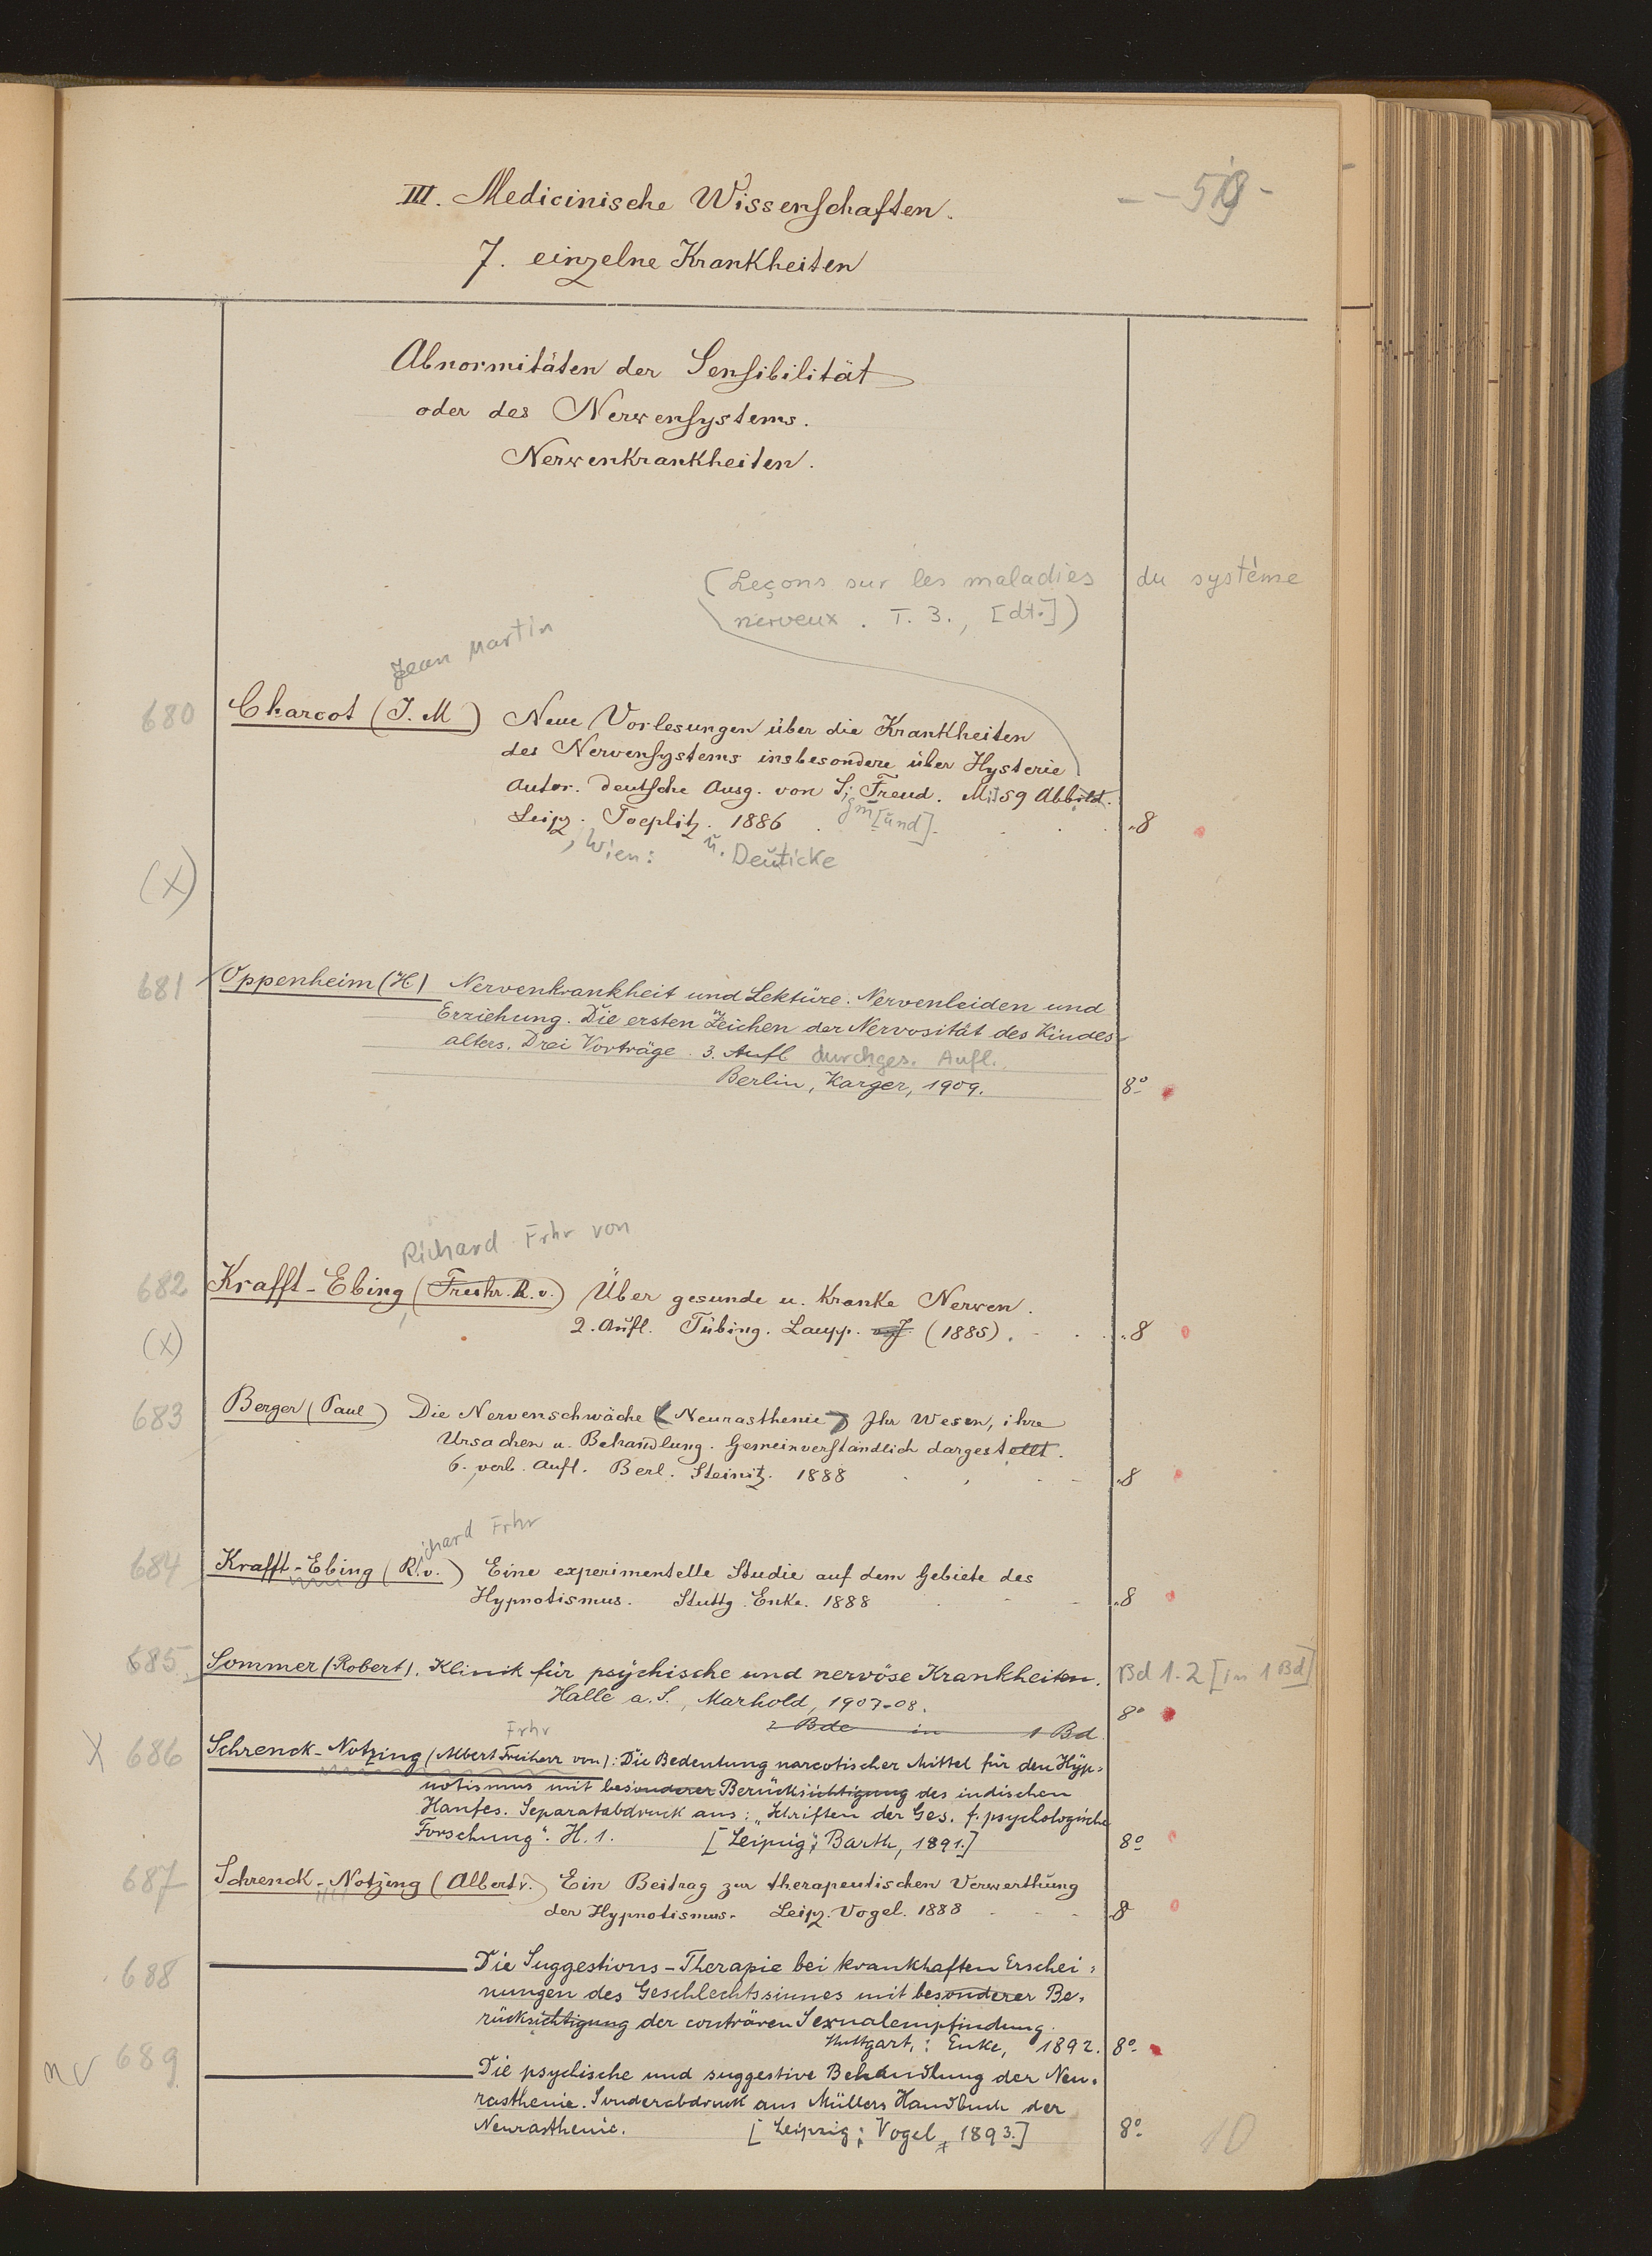 III. Medicinische Wissenschaften.
7. einzelne Krankheiten
Abnormitäten der Sensibilität
oder des Nervensystems.
Nervenkrankheiten.
(Leçons sur les maladies du système
nerveux. T. 3., [dt.])
Jean Martin
680 Charcot (J. M) Neue Vorlesungen über die Krankheiten
des Nervensystems insbesondere über Hysterie
Autor. deutsche Ausg. von Si. Freud. Mit 59 Abbild.
gm[und]
Leipz. Toeplitz. 1886 . . . . 8
, Wien: u. Deuticke
(X)
681 Oppenheim (H) Nervenkrankheit und Lektüre. Nervenleiden und
Erziehung. Die ersten Zeichen der Nervosität des Kindes-
alters. Drei Vorträge. 3. Aufl durchges. Aufl.
Berlin, Karger, 1909. 8°
Richard Frhr von
682 Krafft-Ebing, (Freihr. R. v.) Über gesunde u. kranke Nerven.
(X) 2. Aufl. Tübing. Laupp. o. J. (1885) . . . . 8
683 Berger (Paul) Die Nervenschwäche (Neurasthenie) Ihr Wesen, ihre
Ursachen u. Behandlung. Gemeinverständlich dargestellt.
6. verb. Aufl. Berl. Steinitz. 1888 . . . . 8
ichard Frhr
684 Krafft-Ebing (R. v.) Eine experimentelle Studie auf dem Gebiete des
Hypnotismus. Stuttg. Enke. 1888 . . . 8
685 Sommer (Robert). Klinik für psychische und nervöse Krankheiten. Bd 1.2 [in 1 Bd]
Halle a. S., Marhold, 1907-08. 8°
2 Bde in 1 Bd.
Frhr
X 686 Schrenck-Notzing (Albert Freiherr von): Die Bedeutung narcotischer Mittel für den Hyp=
notismus mit besonderer Berücksichtigung des indischen
Hanfes. Separatabdruck aus: „Schriften der Ges. f. psychologische
Forschung". H. 1. [Leipzig: Barth, 1891.] 8°
687 Schrenck-Notzing (Albert v.) Ein Beitrag zur therapeutischen Verwerthung
der Hypnotismus. Leipz. Vogel. 1888 . . . 8
688 Die Suggestions-Therapie bei krankhaften Erschei=
nungen des Geschlechtssinnes mit besonderer Be=
rücksichtigung der conträren Sexualempfindung.
Stuttgart,: Enke, 1892. 8°
nv 689 Die psychische und suggestive Behandlung der Neu=
rasthenie. Sonderabdruck aus Müllers Handbuch der
Neurasthenie. [Leipzig: Vogel, 1893.] 8°
10